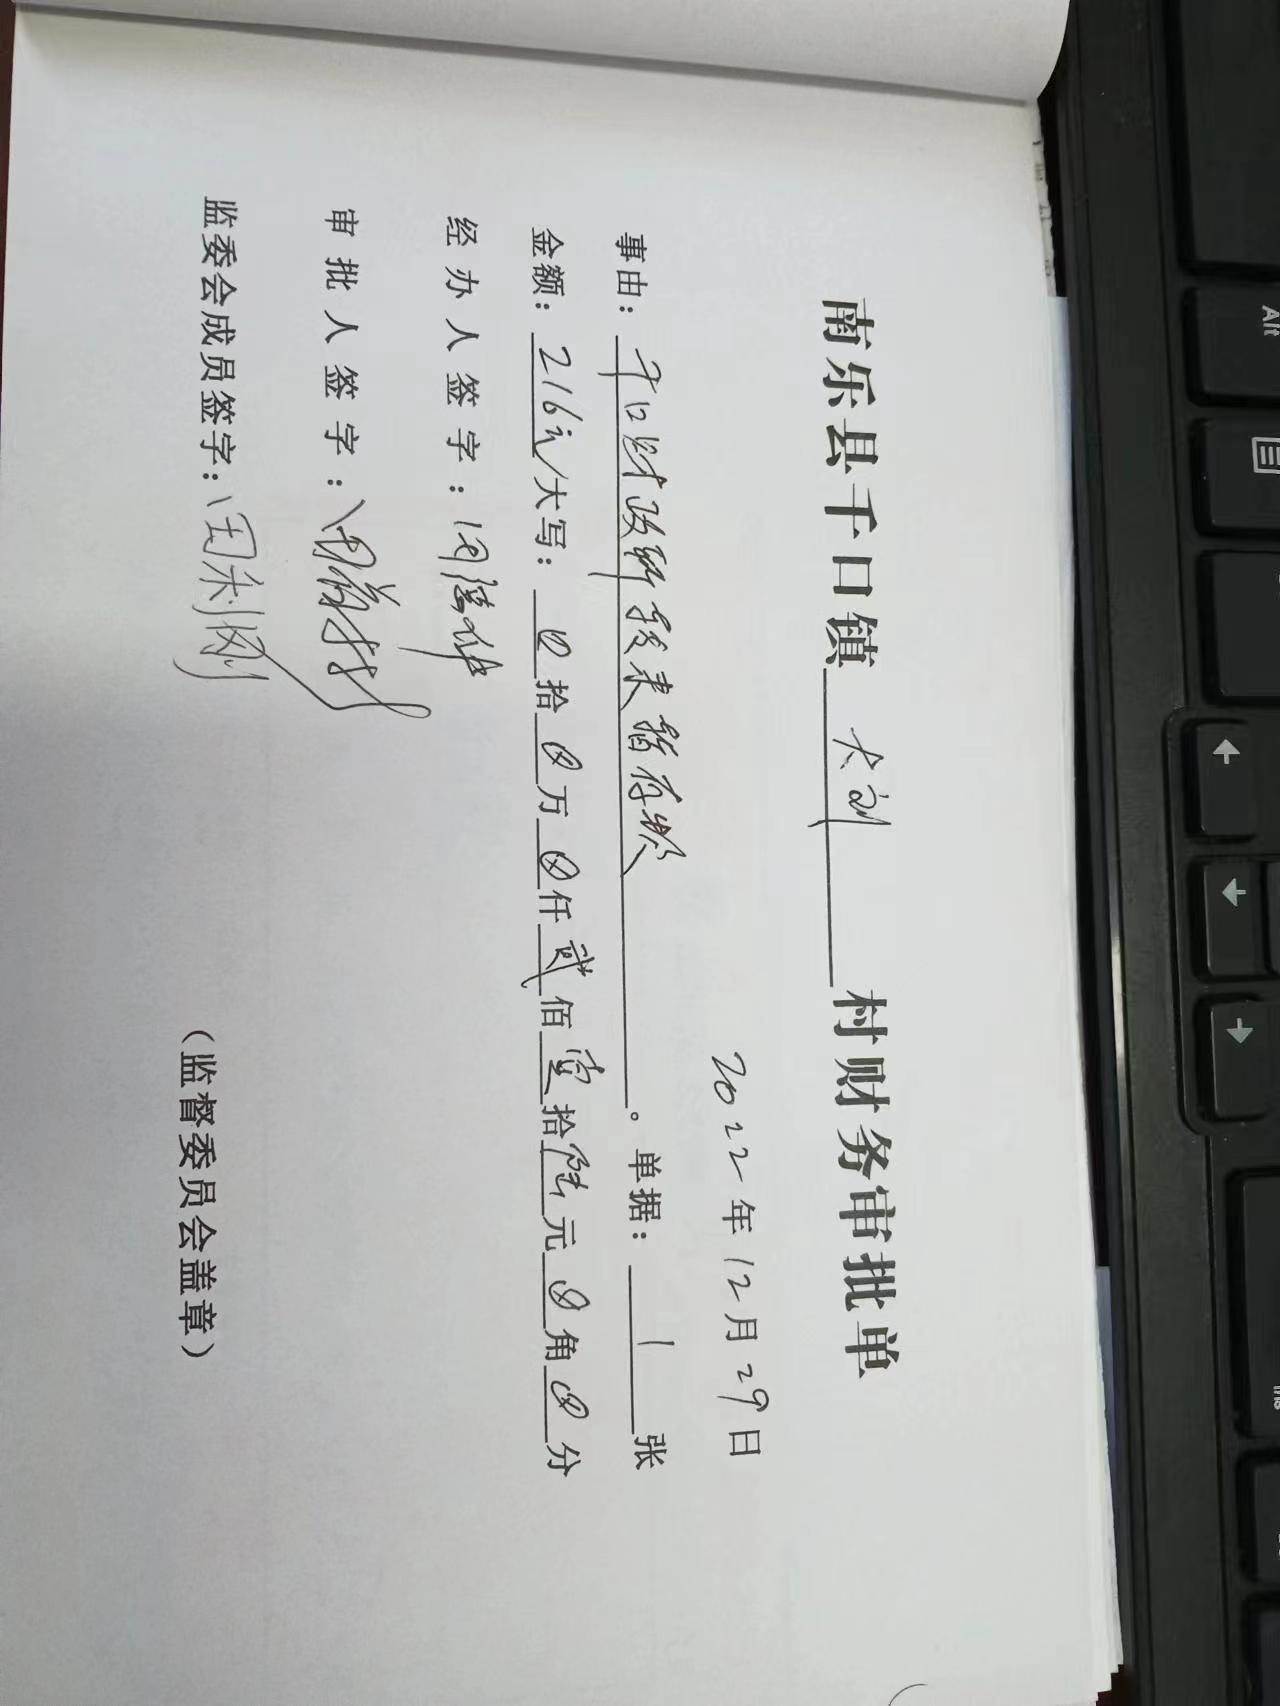 南乐县千口镇 大刘 村财务审批单
2022年12月29日
事由：千口财政所转来暂存款。单据：1张
金额：216元/大写：⊗拾⊗万⊗仟贰佰壹拾陆元⊗角⊗分
经办人签字：
审批人签字：
监委会成员签字：
（监督委员会盖章）
Alt
Ins